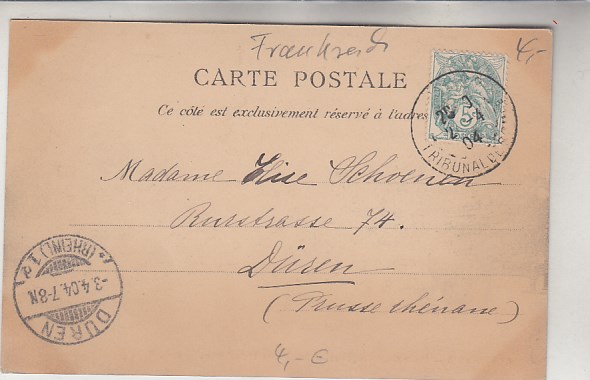 Frankreich
4,-
CARTE POSTALE
Ce côté est exclusivement réservé à l'adres
5
04
TRIBUNAL DE
Madame Elise Schoenen
Rurstrasse 74.
Düren
(Prusse rhénane)
* (RHEINL) 1 d
-3.4.04.7-8N.
DÜREN
4,- €